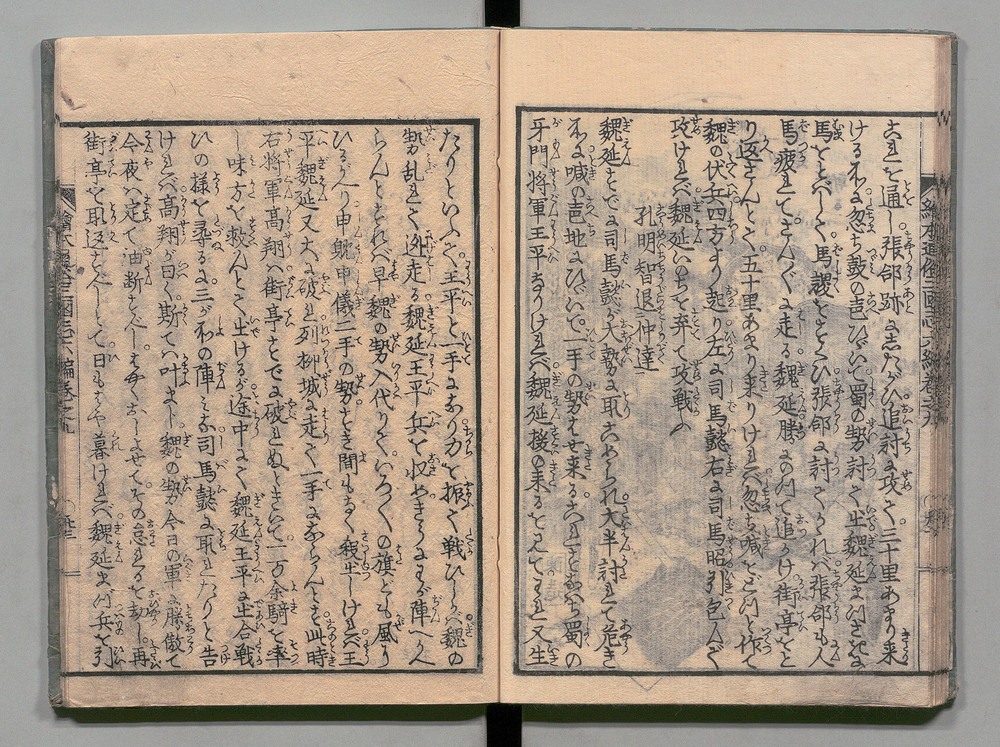 これを通し張郃跡にしたがひ追討に攻て三十里あまり来
ける所に忽ち鼓の声ひゞいて蜀の勢討て出魏延まつさきに
馬をとばしく馬謖をたすひ張郃に討てかゝれバ張郃も人
馬疲れてさん／″＼に走る魏延勝にのつて追かけ街亭をと
り返さんとて五十里あまり来りけれバ忽ち喊をどつと作て
魏の伏兵四方より起り左に司馬懿右に司馬昭引包んで
攻けれバ魏延いのちを弃て攻戦ふ
孔明智退仲達
魏延すでに司馬懿が大勢に取こめられ大半討れて危き
所に喊の声地にひゞいて一手の勢はせ来るこれすなハち蜀の
牙門将軍王平なりけれバ魏延援の来るを見てわれ又生
たりといふて王平と一手になり力を振て戦ひしかバ魏の
勢乱れて迯走る魏延王平兵を収めさきにわが陣へ入
らんとすれバ早魏の勢入代りていろ／＼の旗ども風に
ひるがへり申耽申儀二手の勢をき間もなく殺出しけれバ王
平魏延又大に破れ列柳城に走て一手にならんとす此時
右将軍高翔ハ街亭すでに破れぬときいて一万余騎を率
し味方を救んとて出けるが途中にて魏延王平に出合戦
ひの様を尋るに三が所の陣ミな司馬懿に取れたりと告
けれバ高翔が曰く斯てハ叶まじ魏の勢今日の軍に勝傲て
今夜ハ定て油断すべし夜におしよせてその怠るを劫し再
街亭を取返すべしとて日もはや暮けれバ魏延まづ兵を引